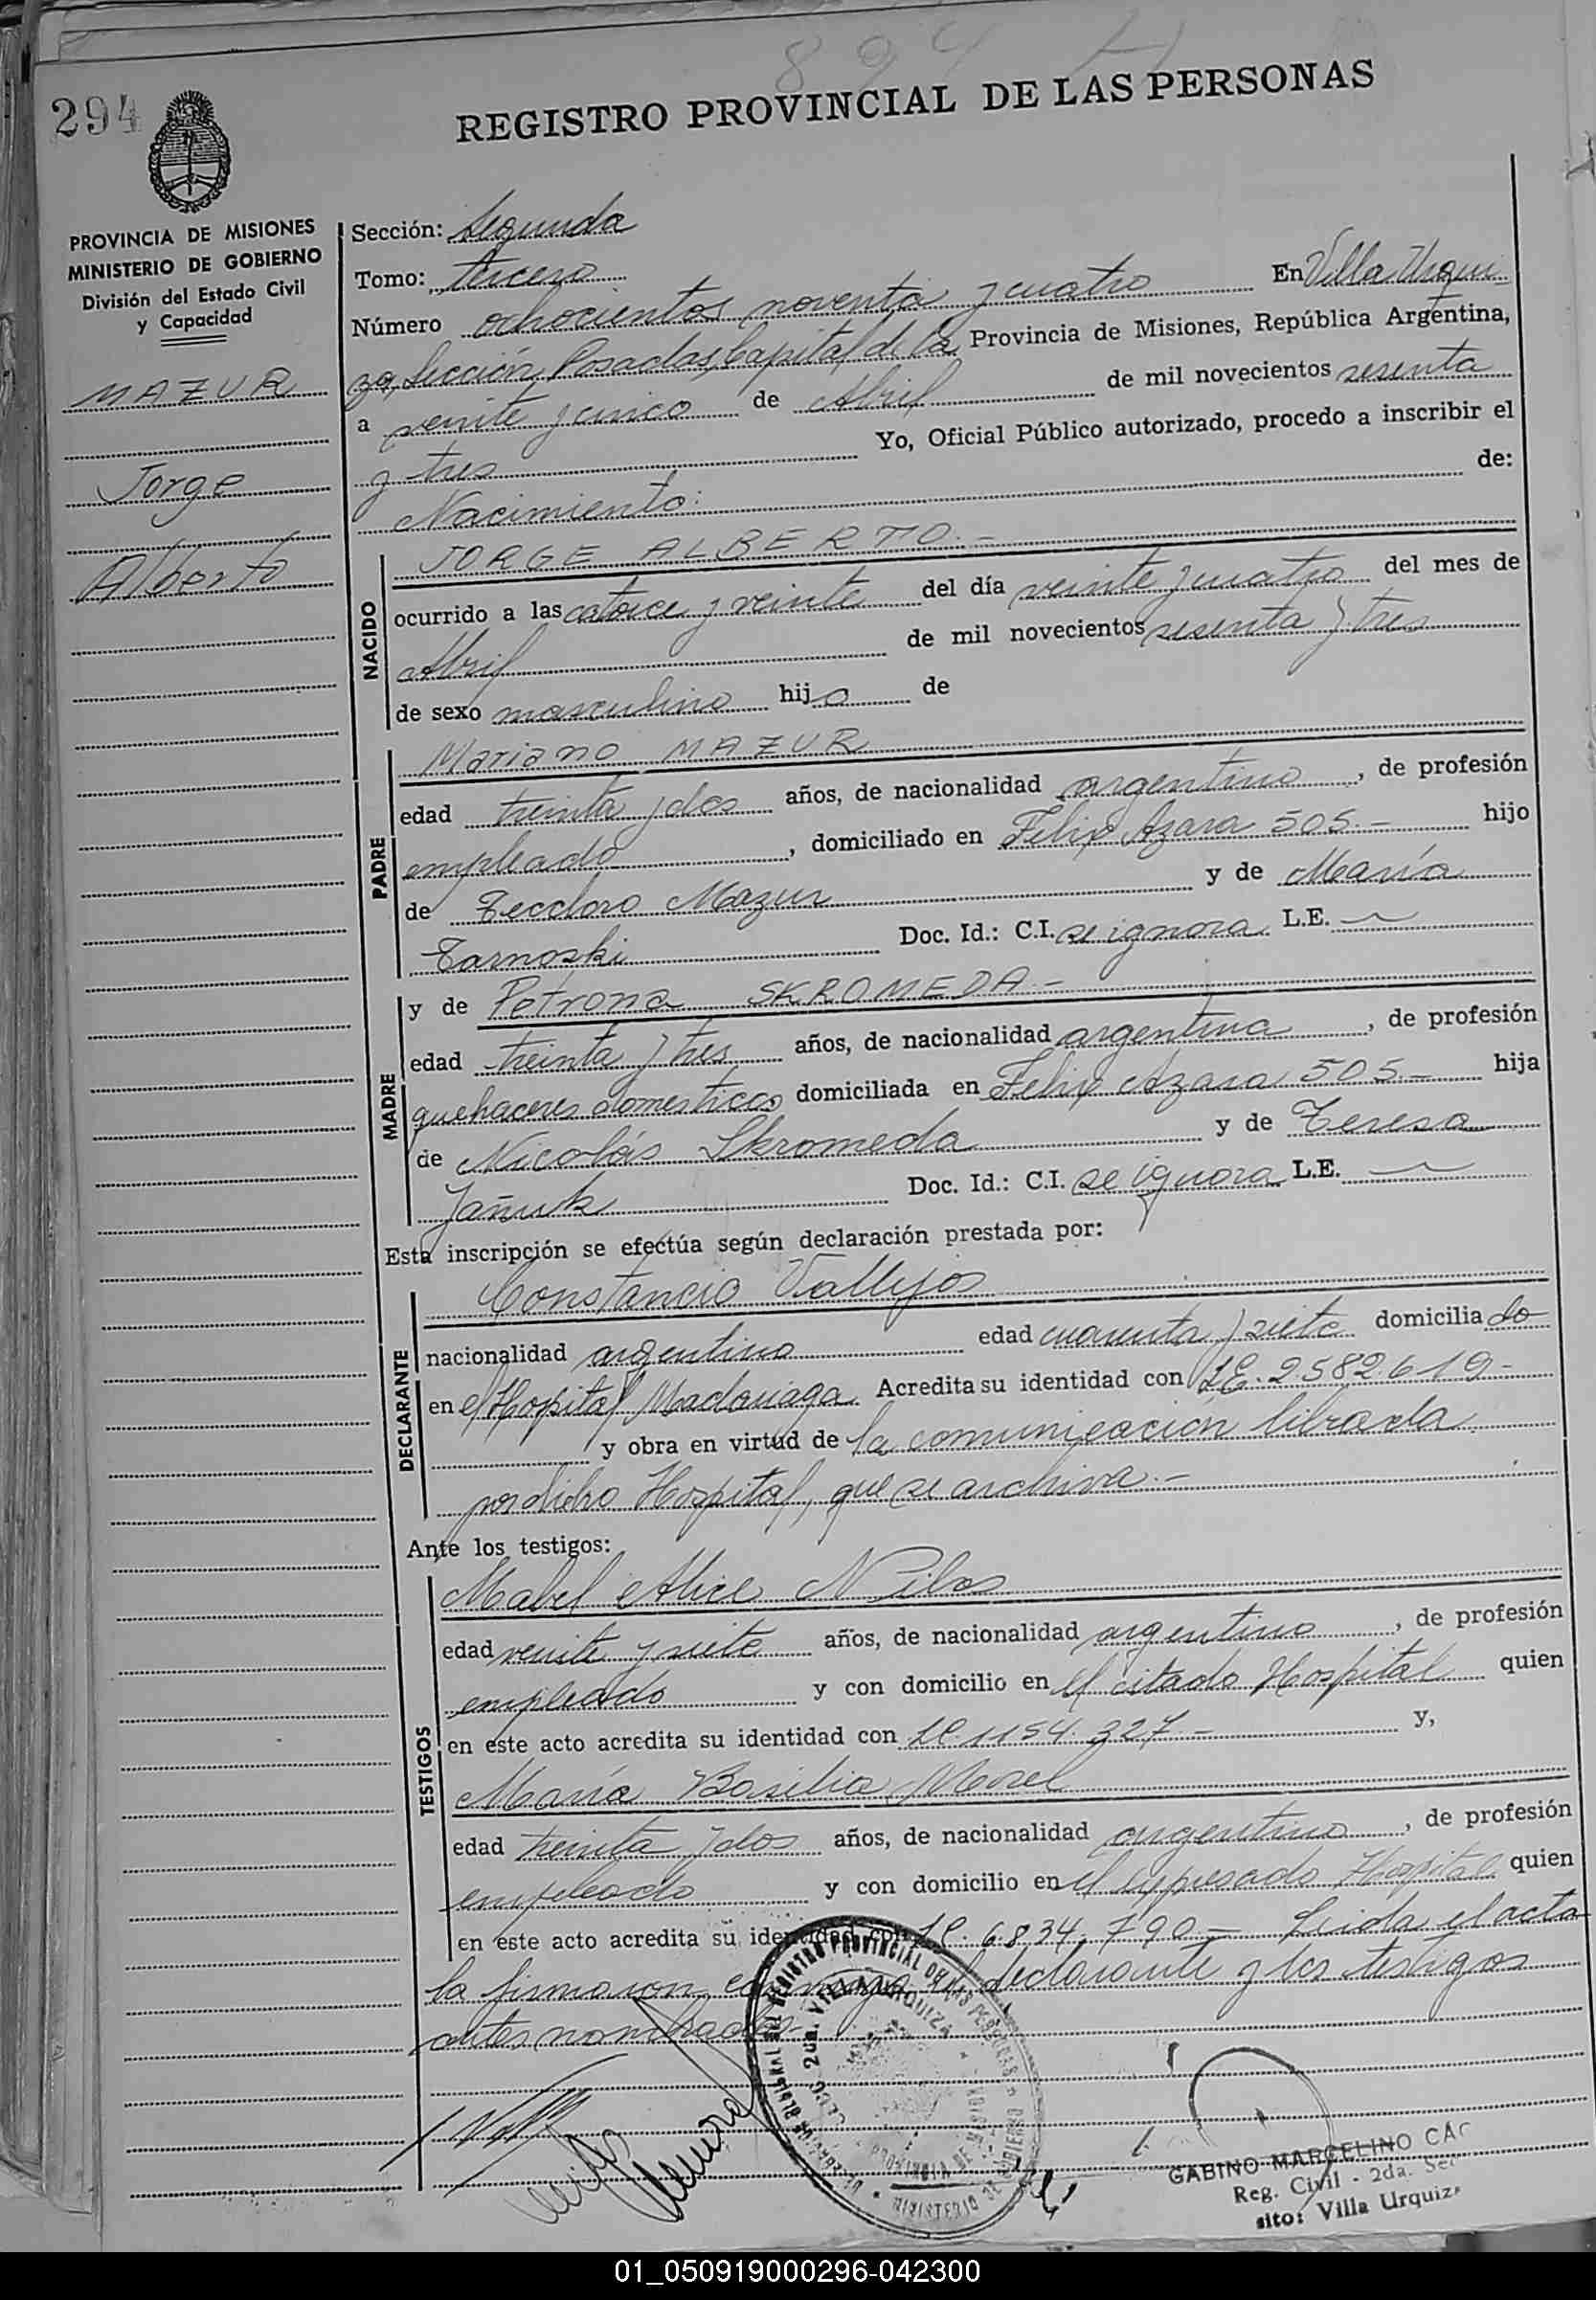 894
294
REGISTRO PROVINCIAL DE LAS PERSONAS
PROVINCIA DE MISIONES
MINISTERIO DE GOBIERNO
División del Estado Civil
y Capacidad
MAZUR
Jorge
Alberto
Sección: Segunda
Tomo: tercero
Número ochocientos noventa y cuatro En Villa Urqui
za, Sección, Posadas, Capital de la Provincia de Misiones, República Argentina,
a veinte y cinco de Abril de mil novecientos sesenta
y tres Yo, Oficial Público autorizado, procedo a inscribir el
Nacimiento: de:
NACIDO
JORGE ALBERTO.-
ocurrido a las catorce y veinte del día veinte y cuatro del mes de
Abril de mil novecientos sesenta y tres
de sexo masculino hijo de
PADRE
Mariano MAZUR
edad treinta y dos años, de nacionalidad argentino, de profesión
empleado, domiciliado en Felix Azara 505.- hijo
de Teodoro Mazur y de María
Tarnoski Doc. Id.: C.I. se ignora L.E.
MADRE
y de Petrona SKROMEDA.-
edad treinta y tres años, de nacionalidad argentina, de profesión
quehaceres domesticos domiciliada en Felix Azara 505.- hija
de Nicolás Skromeda y de Teresa
Jañuk Doc. Id.: C.I. se ignora L.E.
Esta inscripción se efectúa según declaración prestada por:
DECLARANTE
Constancio Vallejos
nacionalidad argentino edad cuarenta y siete domiciliado
en el Hospital Madariaga. Acredita su identidad con LE. 2582.619-
y obra en virtud de la comunicación librada
por dicho Hospital, que se archiva.-
Ante los testigos:
TESTIGOS
Mabel Alice
edad veinte y siete años, de nacionalidad argentino, de profesión
empleado y con domicilio en el citado Hospital quien
en este acto acredita su identidad con LC. 1154.327.- y,
María Basilia Morel
edad treinta y dos años, de nacionalidad argentino, de profesión
empleado y con domicilio en el expresado Hospital quien
en este acto acredita su identidad con LC. 6.834.790.- Leida el acta
la firmaron conmigo el declarante y los testigos
antes nombrados.-
REGISTRO PROVINCIAL DE LAS PERSONAS
2da. VILLA URQUIZA
PROVINCIA DE MISIONES
MINISTERIO DE GOBIERNO
GABINO MARCELINO
Reg. Civil - 2da.
Villa Urquiz
01_050919000296-042300